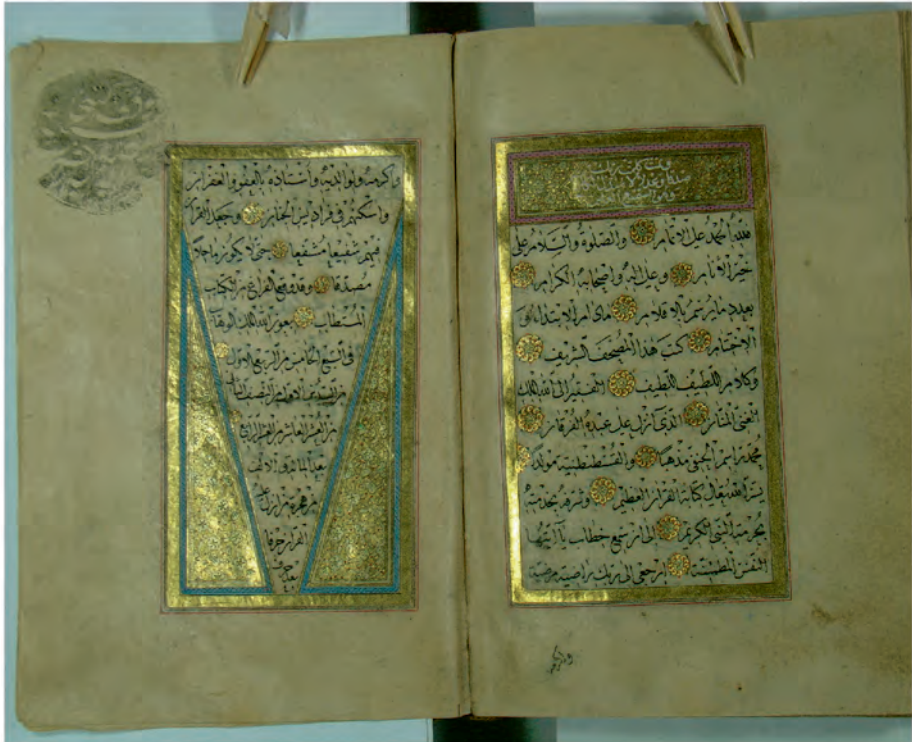 وتمت كلمت ربك
صدقا وعدلا لا مبدل
لكلماته وهو السميع العليم
فلله الحمد على الانام والصلوة والسلام على
خير الأنام وعلى اله واصحابه الكرام
بعدد ما يرسم بالاقلام مادام الابتداء
الاختتام كتب هذا المصحف الشريف
وكلام اللطيف اللطيف الفقير الى الله الملك
الغنى المنان الذى انزل على عبده الفرقان
محمد راسم الحنفى مذهبا والقسطنطينية مولدا
يسر الله تعالى كتابة القرآن العظيم وشرفه بخدمته
بحرمة النبى الكريم الى ان سمع خطاب يا ايتها
النفس المطمئنة ارجعى الى ربك راضية مرضية
واكرمه ولوالديه واستاذه بالعفو والغفران
واسكنهم فى فراديس الجنان وجعل القرآن
فيهم شفيعا مشفعا حتى لا يكون ماحلا
مصدقا وقد وقع الفراغ من الكتاب
المستطاب بعون الله الملك الوهاب
فى السبع الخامس من الربع الاول
من السدس الاول من النصف الثانى
من العشر العاشر من العشر الرابع
بعد المائة والالف
من هجرة من انزل
القرآن حرفا
بعد حرف